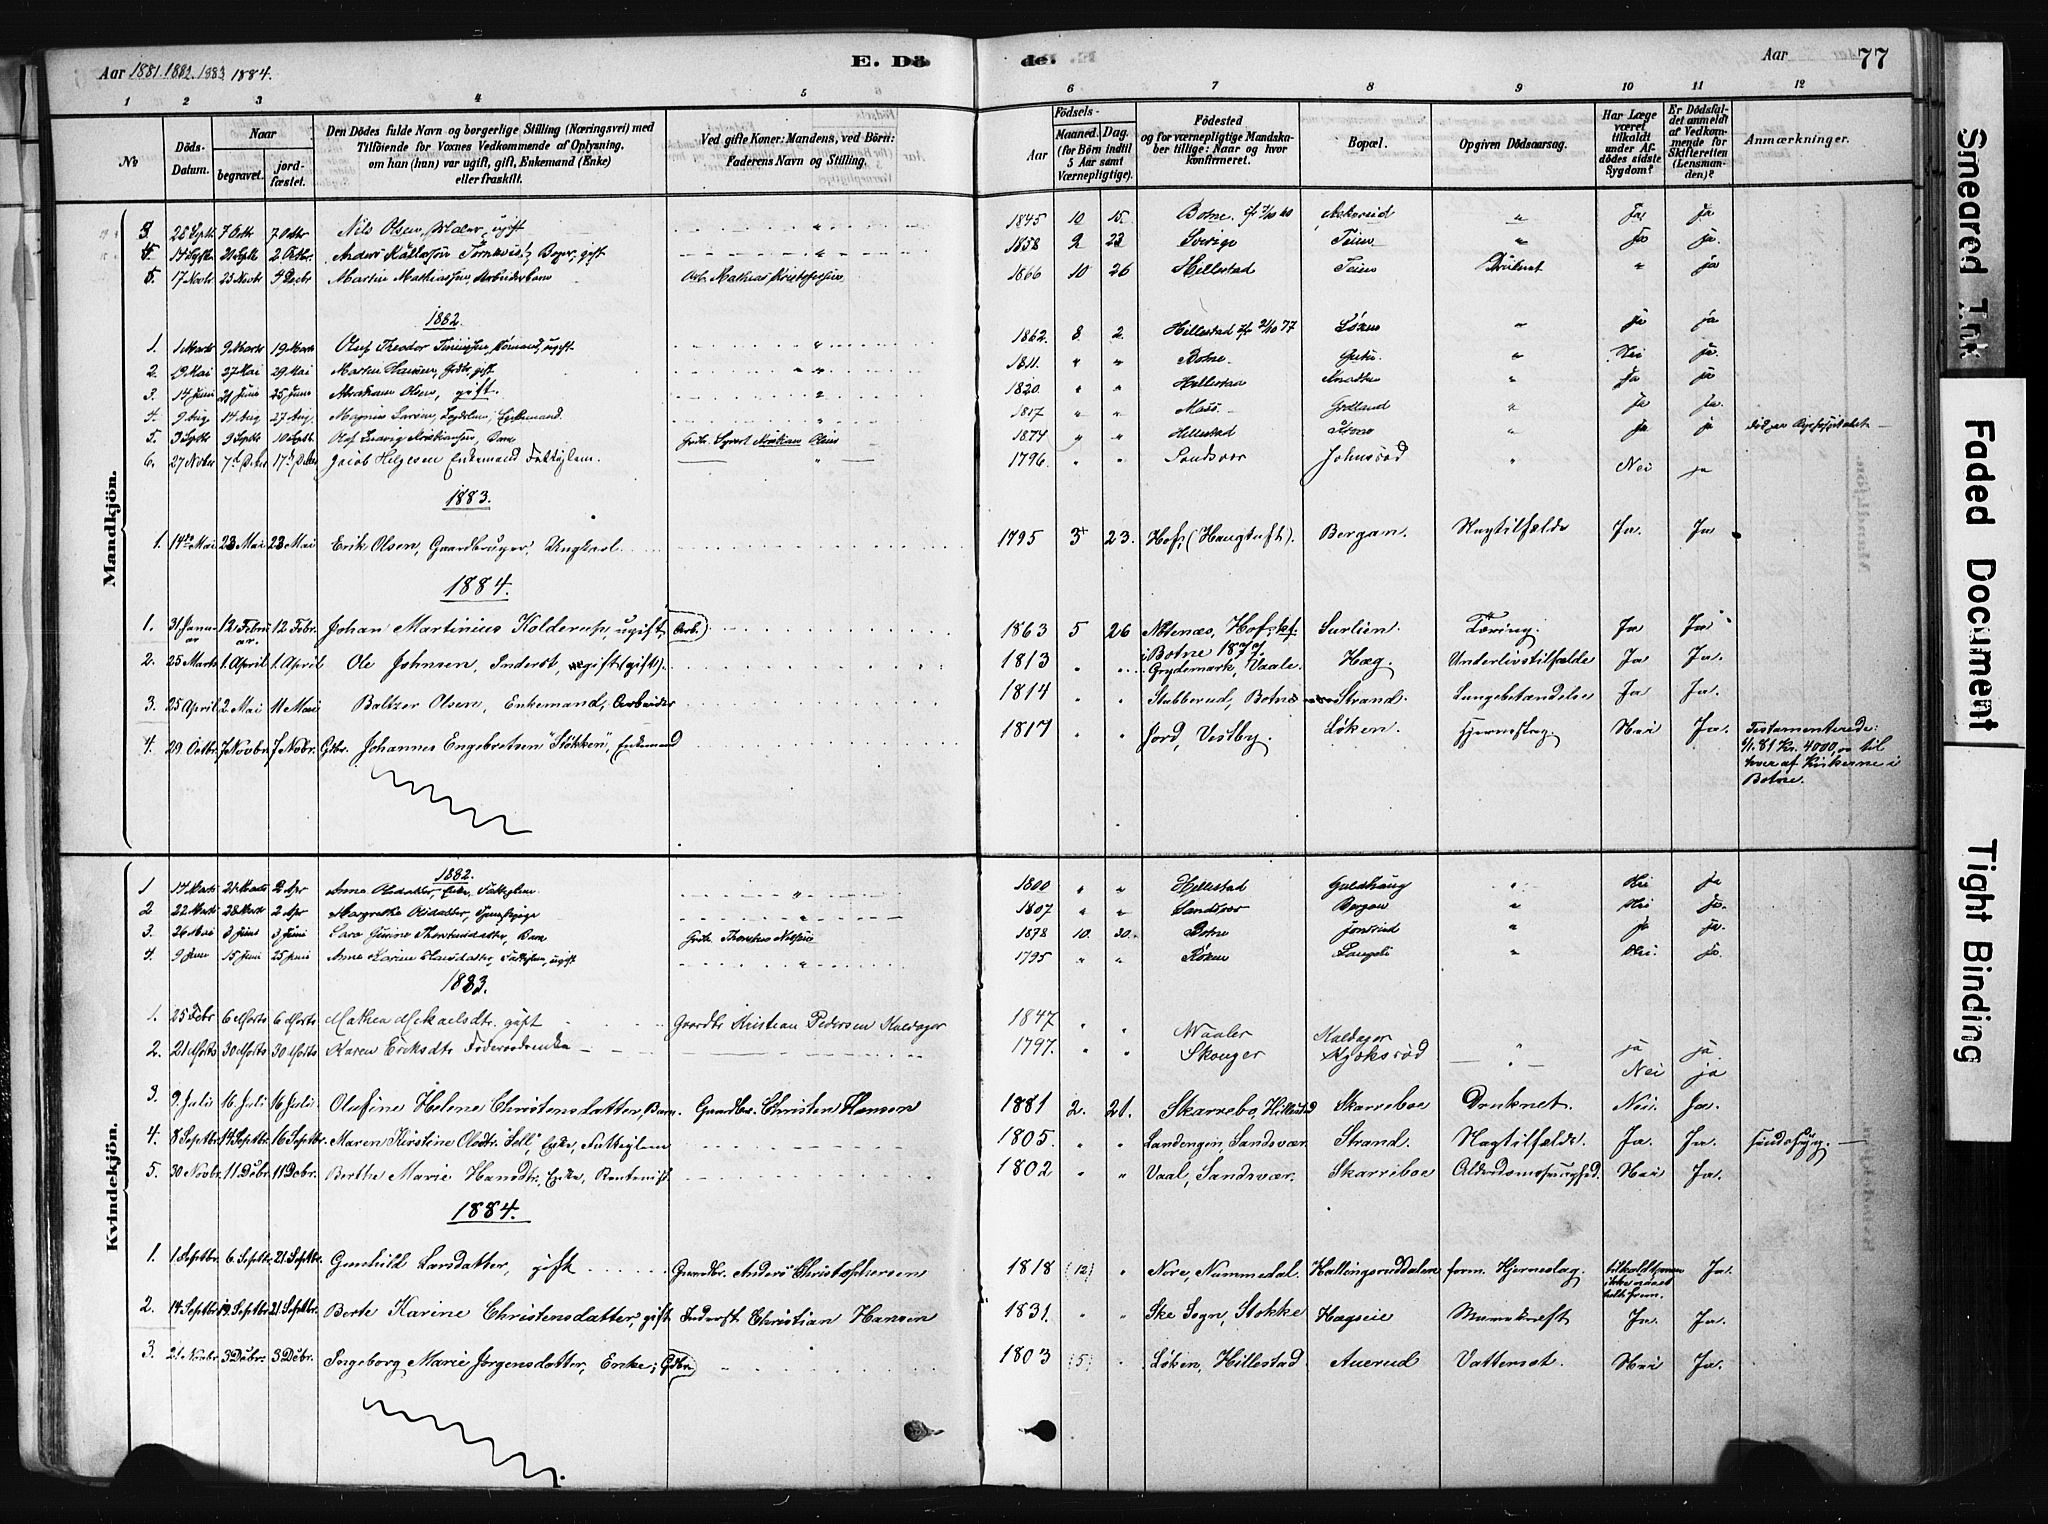 Aar 1881. 1882. 1883 1884.
E. Dö de.
Aar 77
1 2 3 4 5 6 7 8 9 10 11 12
No
Döds-Datum.
Naar
begravet.
jord-fæstet.
Den Dödes fulde Navn og borgerlige Stilling (Næringsvei) med
Tilföiende for Voxnes Vedkommende af Oplysning,
om han (hun) var ugift, gift, Enkemand (Enke)
eller fraskilt.
Ved gifte Koner: Mandens, ved Börn:
Faderens Navn og Stilling.
Födsels-
Aar
Maaned. Dag.
(for Börn indtil
5 Aar samt
Værnepligtige).
Födested
og for værnepligtige Mandska-
ber tillige: Naar og hvor
konfirmeret.
Bopæl.
Opgiven Dödsaarsag.
Har Læge
været
tilkaldt
under Af-
dödes sidste
Sygdom?
Er Dödsfal-
det anmeldt
af Vedkom-
mende for
Skifteretten
(Lensman-
den)?
Anmærkninger.
Mandkjön.
3. 7 Octr 7 Octr Nils Olsen, ugift 1845 10 15. Botne Ja ja
4. 2 Octbr. Anders gift 1858 2 23 Sverige Teien Ja ja.
5. 17 Novbr 25 Novbr 4 Decbr Martin Mathiassen, Arb. Mathias Kristofersen 1866 10 26 Hillestad Teien Druknet " ja
1882.
1. 1 Marts 9 Marts 19 Marts Oluf Theodor ugift 1862. 8 2. Hillestad Løken " ja ja
2. 19 Mai 27 Mai 29 Mai Martin Hansen, Gdbr, gift 1811. " " Botne. " Nei ja.
3. 14 Juni 21 Juni 25 Juni Abraham Olsen, gift. 1820. " " Hillestad " Ja ja
4. 9 Aug 14 Aug 27 Aug Magnus Larsen, Enkemand. 1817 " " " Ja ja.
5. 3 Septb 9 Septb 10 Septb. Olaf Ludvig Kristiansen, Barn Gbr. Syvert Kristian Olsen 1874 " " Hillestad " ja ja
6. 27 Novbr 7d Decbr 17d Decbr Jacob Helgesen Enkemand Fattiglem. 1796. " " Sandsvær Johnsrød " Nei ja
1883.
1. 14de Mai 23 Mai 23 Mai Erik Olsen, Gaardbruger, Ungkarl. 1795 5 23. Hof, (Haugtuft). Bergan. Slagtilfælde Ja. Ja
1884.
1. 31 Januar 12 Februar. 12 Febr. Johan Martinius Holderup, ugift, Arb. 1863 5 26 Hof; kf. i Botne 1877. Surlien. Tæring. Ja Ja
2. 25 Marts 1. April 1. April Ole Johnsen, Inderst, gift (gift). 1813 " " Grydemark, Vaale. Hæg. Underlivstilfælde Ja Ja.
3. 25 April 2. Mai 11 Mai Baltzer Olsen, Enkemand, Arbeider 1814 " " Stubberud, Botne Strand. Lungebetændelse Ja Ja.
4. 29 Octbr. 7 Novbr. 7 Novbr. Gdbr. Johannes Engebretsen "Støkken", Enkemand 1817 " " Jord, Vestby. Løken. Hjerneslag. Nei Ja. Testamenterede
1/1. 81 Kr. 4000,00 til
hver af Kirkerne i
Botne.
Kvindekjön.
1882.
1 14 Marts 21 Marts 2 Apr Anne Olsdatter, Enke, Fattiglem 1800 " " Hillestad Guldhaug " Nei ja
2 22 Marts 28 Marts 2 Apr Margrethe Olsdatter, 1807 " " Sandsvær Bergan " Nei ja.
3. 26 Mai 3 Juni 3 Juni Sara Gurine Thorstensdatter, Barn Gbr. Thorsten Nielsen 1878 10. 30. Botne Jonsrud " ja ja.
4. 9 Juni 15 Juni 25 Juni Anne Karine Hansdatter, Fattiglem, ugift 1795 " " Røken " Nei. ja.
1883.
1. 25 Febr 6 Marts 6 Marts Mathea Mikaelsdtr. gift Gaardbr Kristian Pedersen Kaldager 1847 " " Waaler Kaldager " ja ja.
2. 21 Marts 30 Marts 30 Marts Karen Eriksdtr Føderaadsenke 1797. " " Skouger Kjøksrød " Nei ja
3. 9 Juli 16. Juli 16 Juli. Olufine Helene Christensdatter, Barn. Gaardbr. Christen Hansen 1881 2. 21. Skarrebo, Hillestad Skarreboe Druknet. Nei. Ja.
4. 8 Septbr. 14 Septbr. 16 Septbr. Maren Kirstine Olsdtr. "Sell", Enke, Fattiglem 1805. " " Landengen, Sandsvær. Strand. Slagtilfælde. Ja. Ja Sindssyg.
5. 30 Novbr. 11 Decbr. 11 Decbr. Berthe Marie Hansdtr., Enke, Rentenist 1802 " " Vaal, Sandsvær. Skarreboe Alderdomssvaghed. Nei Ja.
1884.
1. 1. Septbr. 6 Septbr. 21 Septbr. Gunhild Larsdatter, gift Gaardbr. Anders Christophersen 1818 (12) " Nore, Nummedal. Hallingsruddalen form. Hjerneslag. tilkaldt, men
ikke naaet
helt frem. Ja.
2. 14 Septbr. 19 Septbr. 21 Septbr. Berte Karine Christensdatter, gift Inderst Christian Hansen 1831. " " Ske Sogn, Stokke Hagseie Mavekræft Ja. Ja.
3. 21 Novbr. 3 Decbr. 3 Decbr. Ingeborg Marie Jørgensdatter, Enke; Gdbr. 1803 (5) " Løken, Hillestad. Auerud Vattersot. Nei Ja.
Smeared Ink
Faded Document
Tight Binding